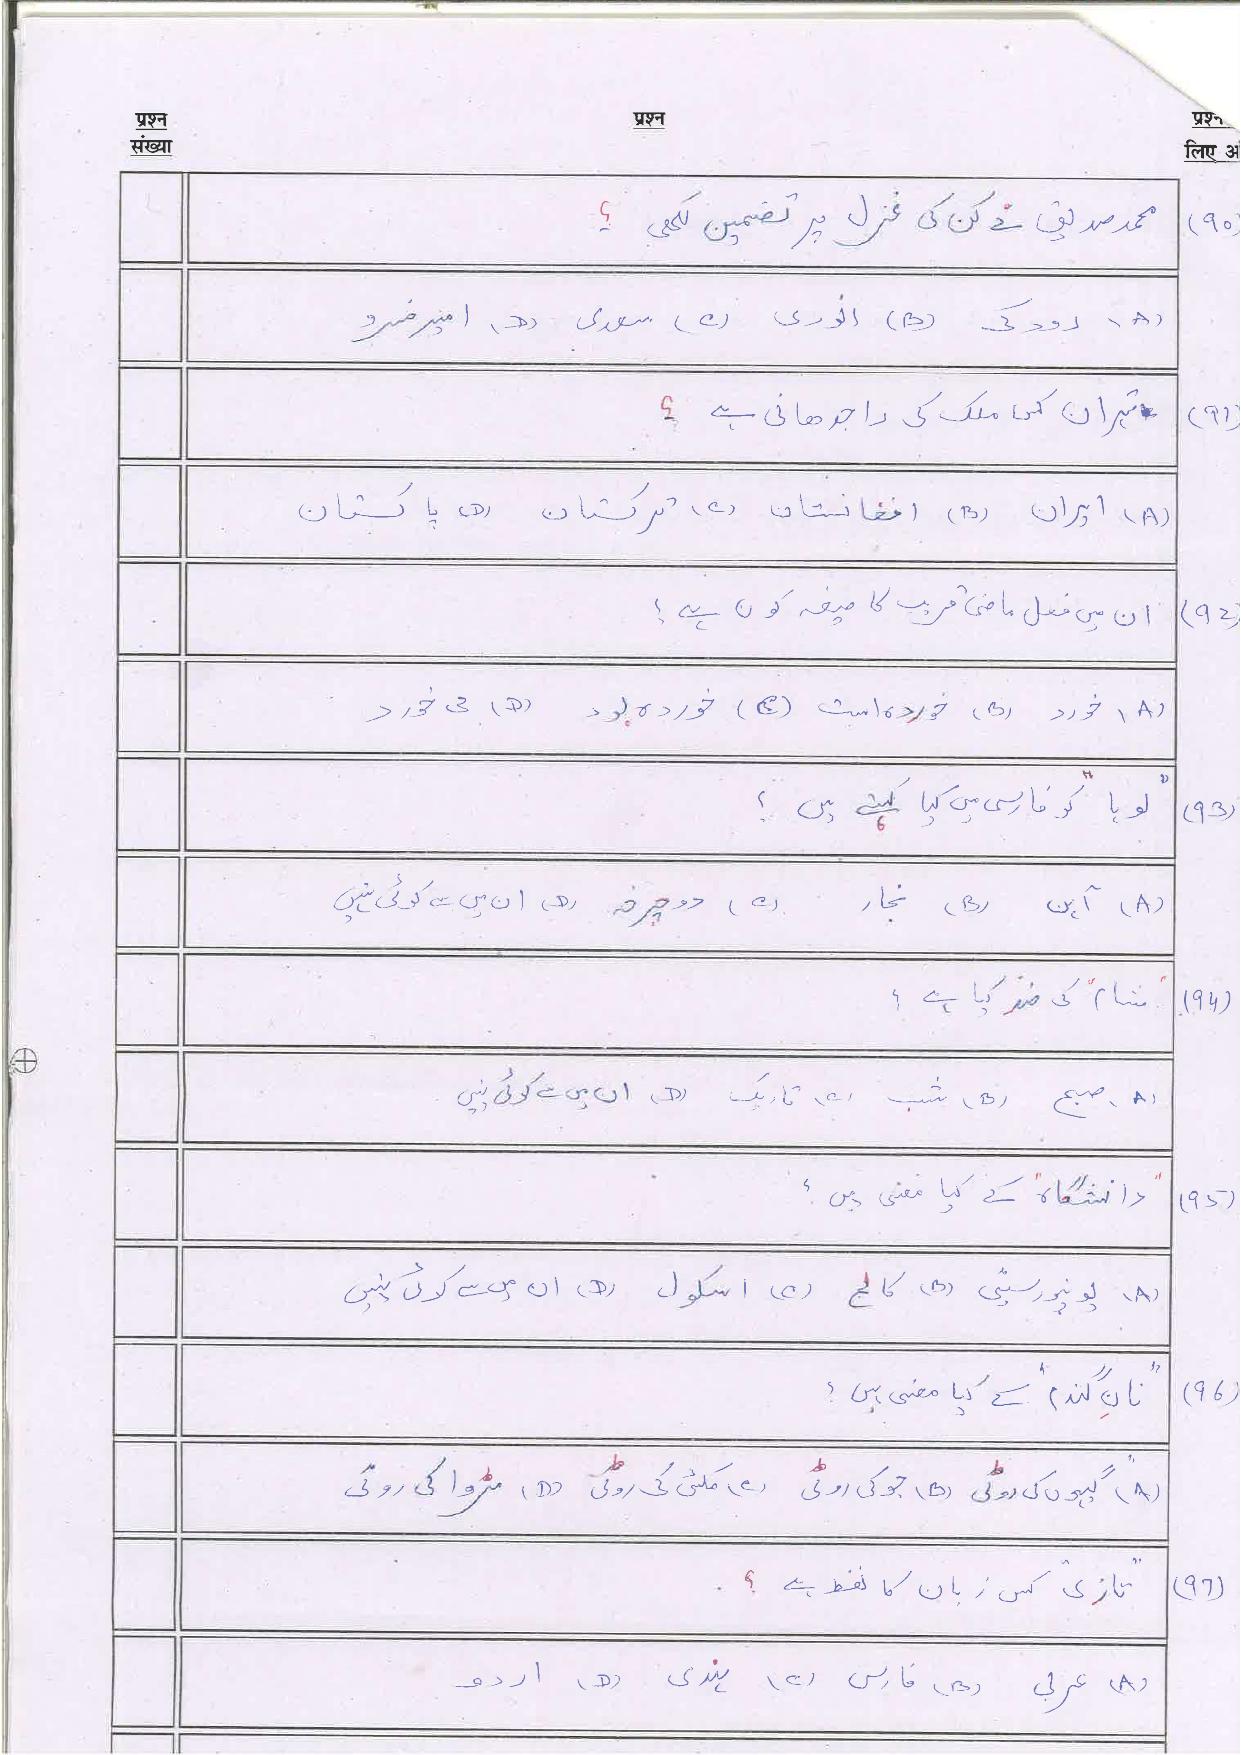 प्रश्न संख्या
प्रश्न
प्रश्न
लिए
(90) محمد صدیق نے کن کی غزل پر تضمین لکھی ؟
(A) رودکی (B) انوری (C) سعدی (D) امیر خسرو
(91) تہران کس ملک کی راجدھانی ہے ؟
(A) ایران (B) افغانستان (C) ترکستان (D) پاکستان
(92) ان میں فعل ماضی قریب کا صیغہ کون ہے ؟
(A) خورد (B) خوردہ است (C) خوردہ بود (D) می خورد
(93) "لوہا" کو فارسی میں کیا کہتے ہیں ؟
(A) آہن (B) نجار (C) دوچرخہ (D) ان میں سے کوئی نہیں
(94) "شام" کی ضد کیا ہے ؟
(A) صبح (B) شب (C) تاریک (D) ان میں سے کوئی نہیں
(95) "دانشگاہ" کے کیا معنی ہیں ؟
(A) یونیورسیٹی (B) کالج (C) اسکول (D) ان میں سے کوئی نہیں
(96) "نانِ گندم" کے کیا معنی ہیں ؟
(A) گیہوں کی روٹی (B) جو کی روٹی (C) مکئی کی روٹی (D) مڑوا کی روٹی
(97) "تازی" کس زبان کا لفظ ہے ؟
(A) عربی (B) فارسی (C) ہندی (D) اردو